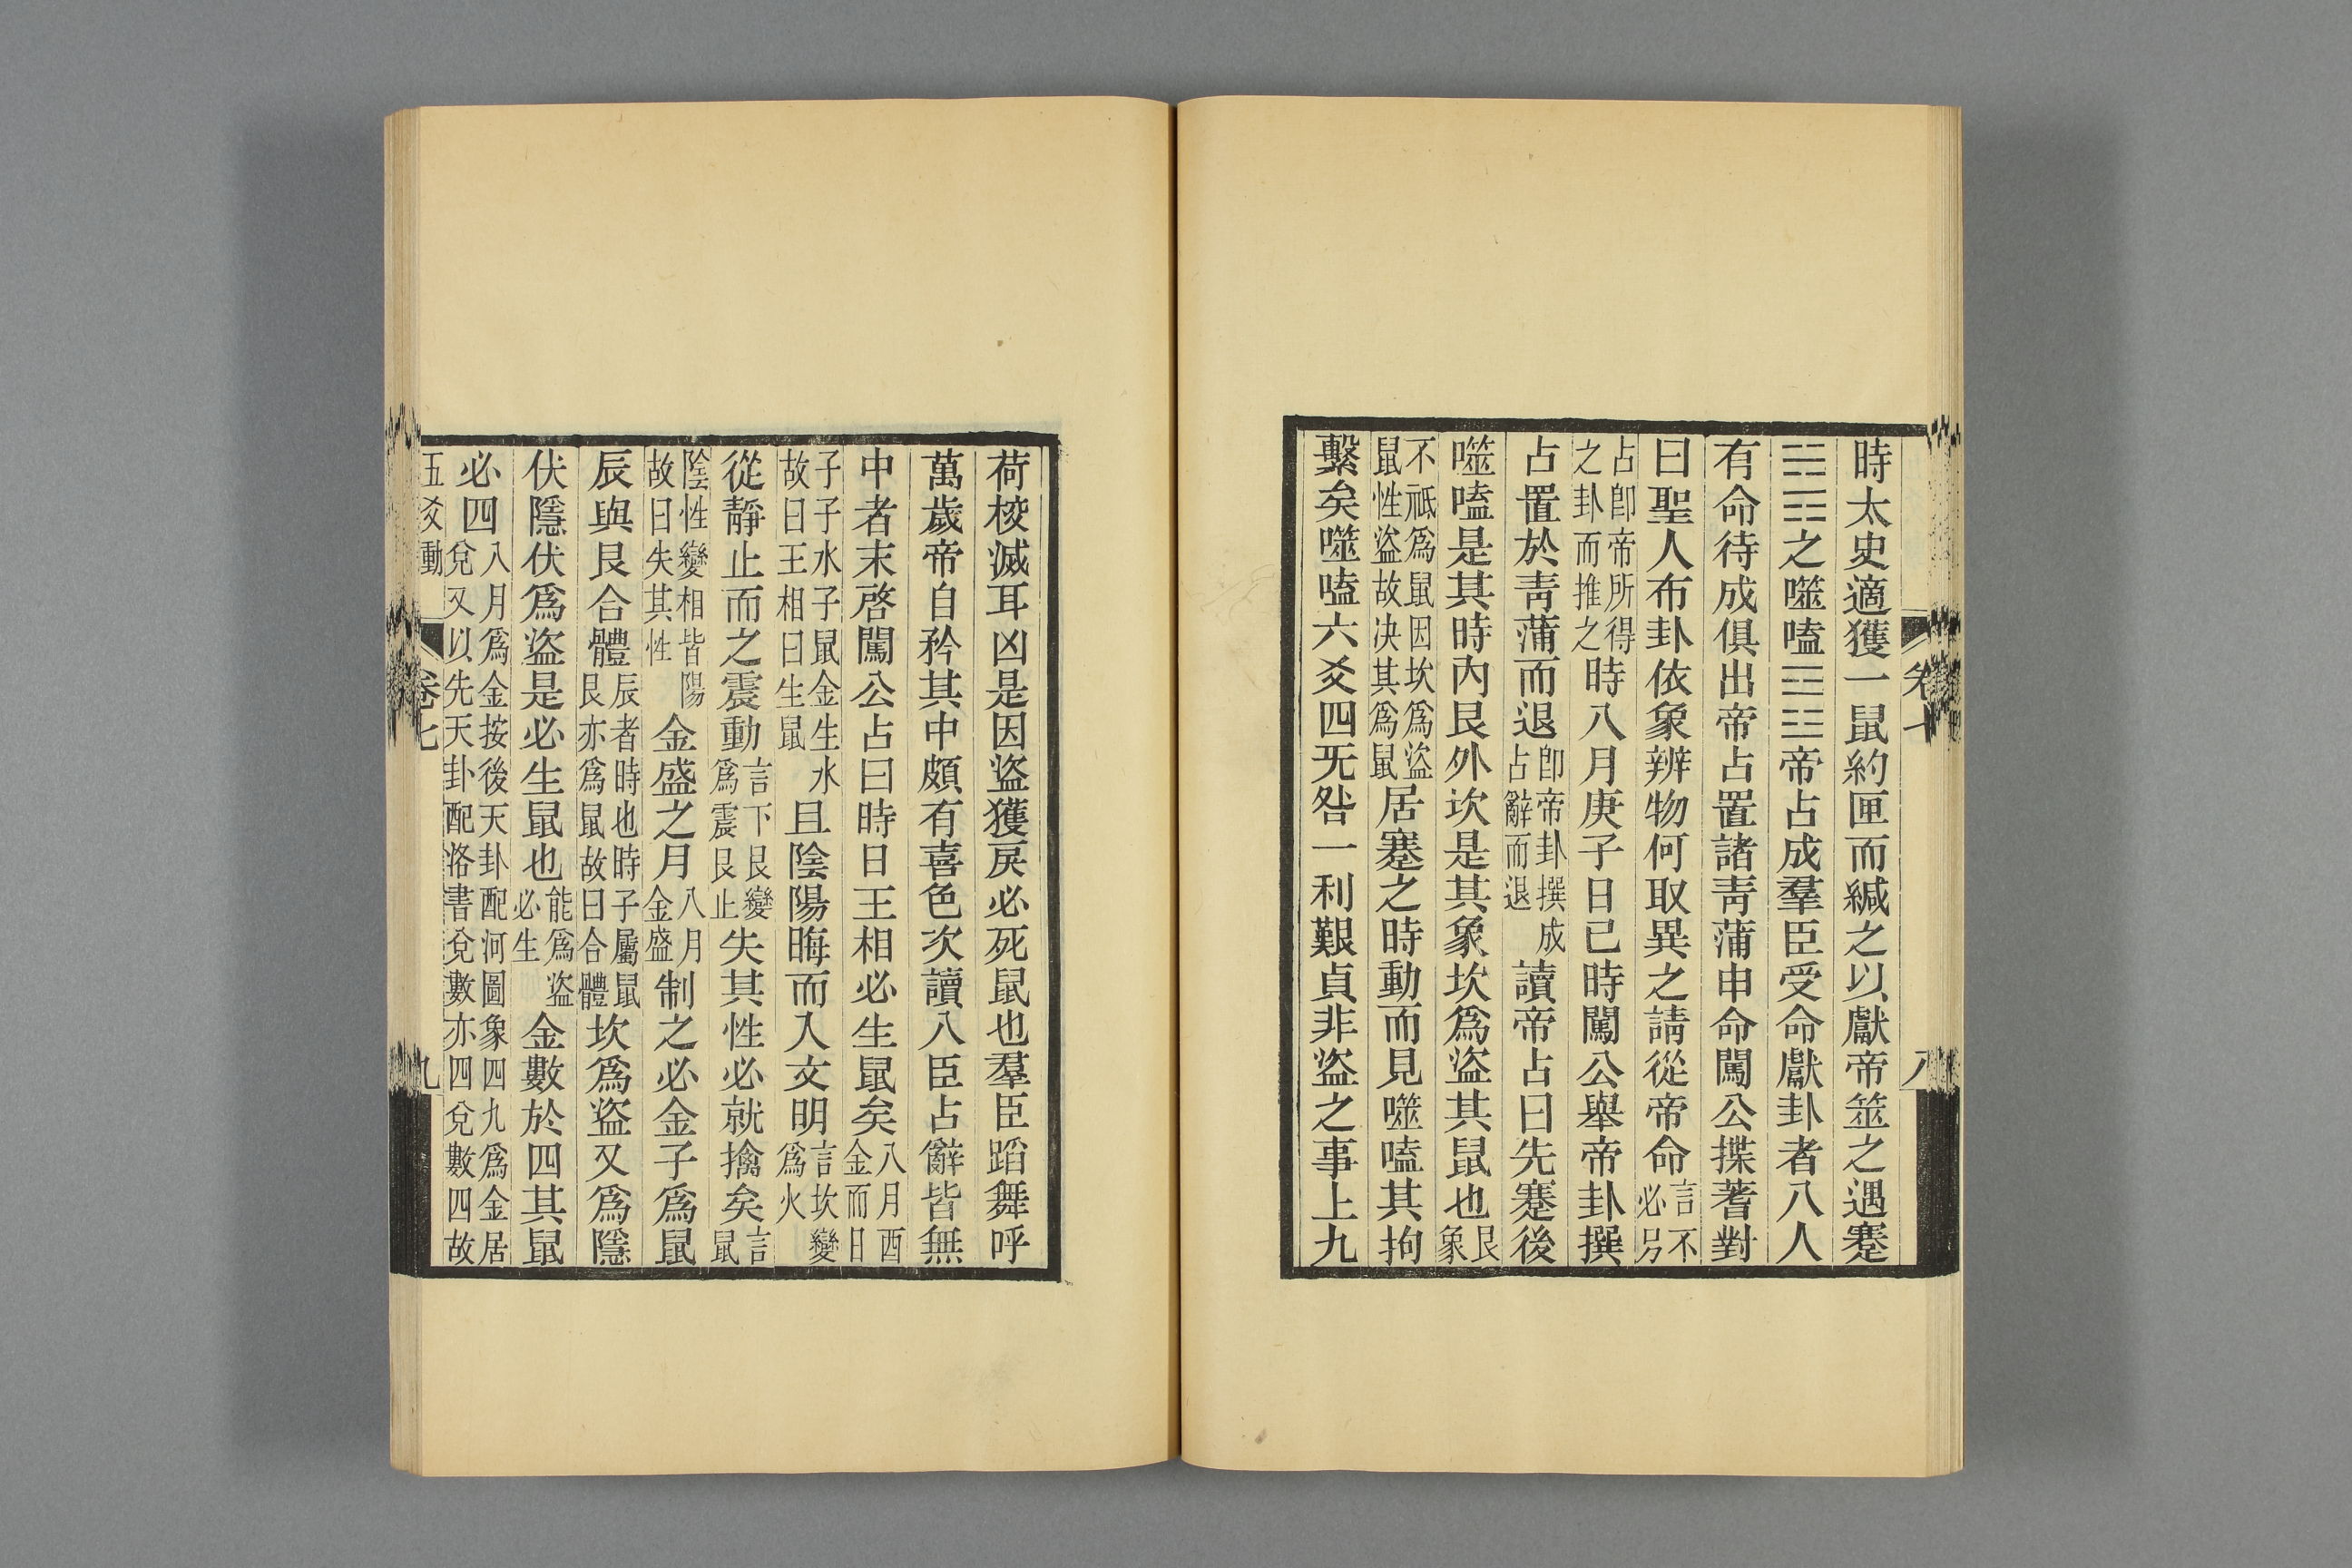 卷七
八
時太史適獲一鼠約匣而緘之以獻帝筮之遇蹇
䷦之噬嗑䷔帝占成羣臣受命獻卦者八人
有命待成俱出帝占置諸青蒲申命闖公揲蓍對
曰聖人布卦依象辨物何取異之請從帝命言不必另
占卽帝所得之卦而推之時八月庚子日巳時闖公舉帝卦撰
占置於青蒲而退卽帝卦撰成占辭而退讀帝占曰先蹇後
噬嗑是其時內艮外坎是其象坎爲盜其鼠也艮象
不祗爲鼠因坎爲盜鼠性盜故决其爲鼠居蹇之時動而見噬嗑其拘
繫矣噬嗑六爻四无咎一利艱貞非盜之事上九
荷校滅耳凶是因盜獲戾必死鼠也羣臣蹈舞呼
萬歲帝自矜其中頗有喜色次讀八臣占辭皆無
中者末啓闖公占曰時日王相必生鼠矣八月酉金而日
子子水子鼠金生水故曰王相曰生鼠且陰陽晦而入文明言坎變爲火
從靜止而之震動言下艮變爲震艮止失其性必就擒矣言鼠
陰性變相皆陽故曰失其性金盛之月八月金盛制之必金子爲鼠
辰與艮合體辰者時也時子屬鼠艮亦爲鼠故曰合體坎爲盜又爲隱
伏隱伏爲盜是必生鼠也能爲盜必生金數於四其鼠
必四八月爲金按後天卦配河圖象四九爲金居兌又以先天卦配洛書兌數亦四兌數四故
五爻動
卷七
九